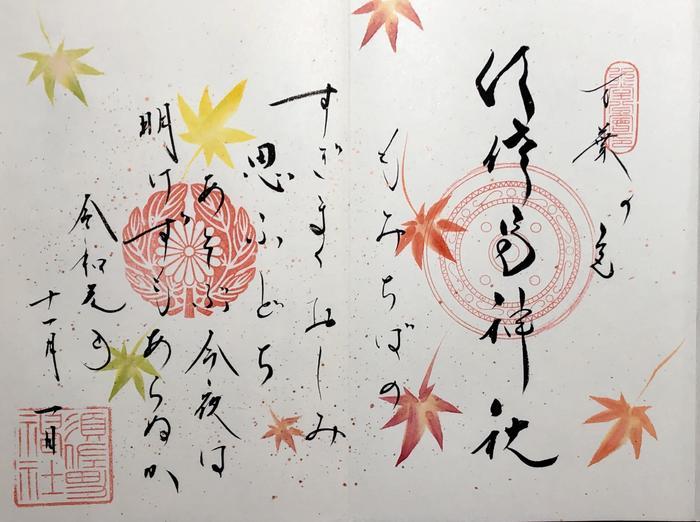 万葉の
須佐男神社
もみちばの
すぎまくおしみ
思ふどち
あそぶ今夜は
明けずもあらぬか
令和元年
十一月一日
須佐男
神社